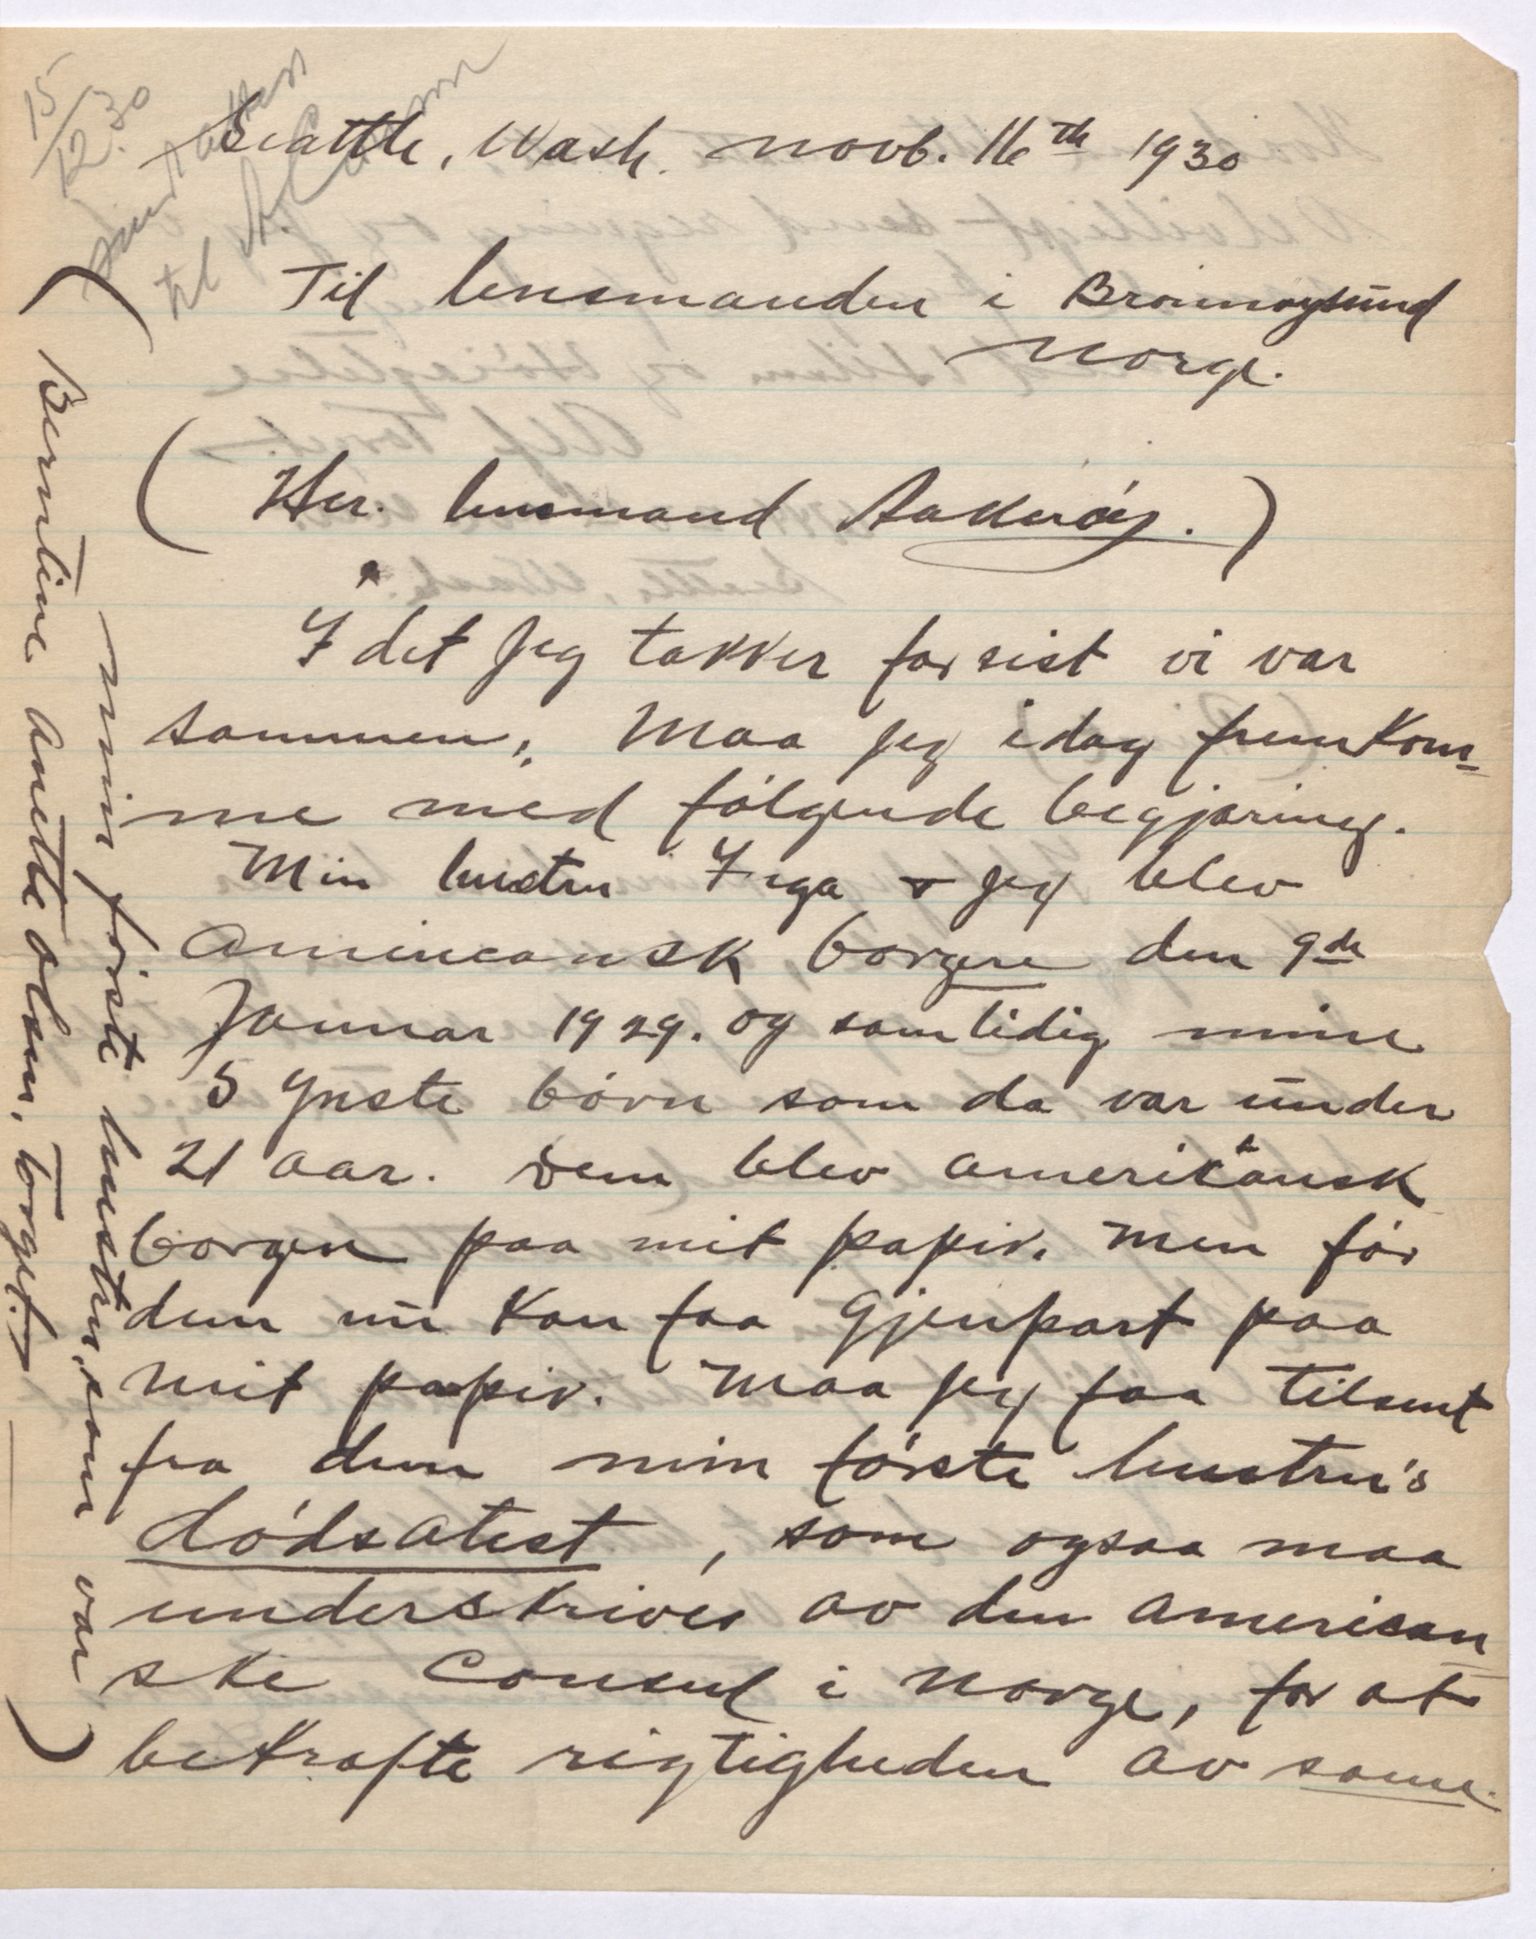 15/12.30
til A.
Seattle, Wash. novb. 16th 1930
Til lensmanden i Brønnøysund
Norge.
(Her. lensmand Aakerøy.)
I det jeg takker for sist vi var
sammen, Maa jeg idag fremkom-
me med følgende begjæring.
Min hustru Inga & jeg blev
Amiricansk borgere den 9de
Januar 1929. og samtidig mine
5 ynste børn som da var under
21 aar. Dem blev amerikansk
borgere paa mit papir. Men før
dem nu kan faa Gjenpart paa
mit papir. Maa jeg faa tilsent
fra dem min første hustru's
dødsatest, som ogsaa maa
underskrives av den american
ske Consul i Norge, for at
bekrafte rigtigheden av same.
min første hustru, som var
(Berntine Anette Olsen, Torget.)